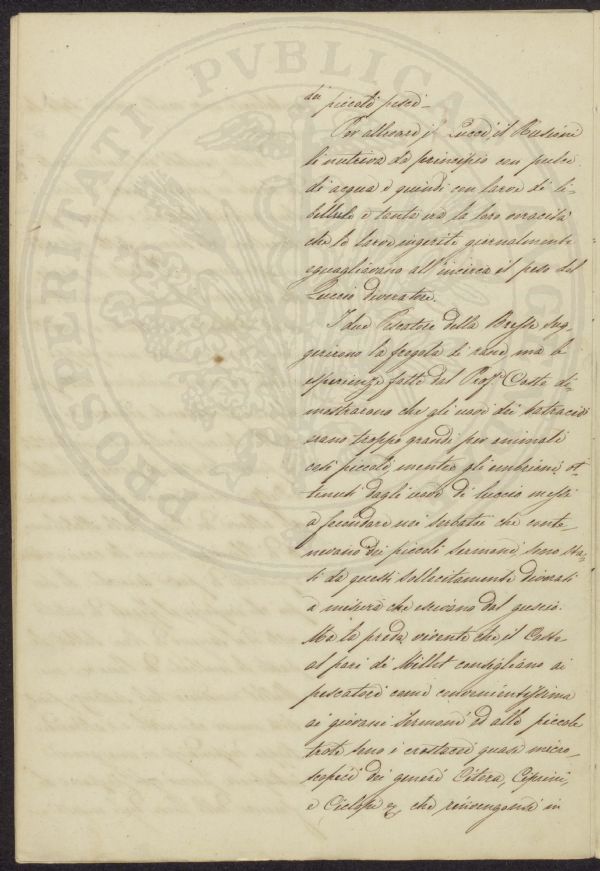 dei piccoli pesci –
Per allevare i Lucci il Rusconi
li nutriva da principio con pulci
di acqua e quindi con larve di li-
bellule e tanta era la loro voracità
che le larve ingerite giornalmente
eguagliavano all'incirca il peso del
Luccio divoratore.
I due Pescatori della Bresse sug-
gerirono la fregola di rane, ma le
esperienze fatte dal Prof. Coste di-
mostrarono che gli uovi dei batraci
erano troppo grandi per animali
così piccoli, mentre gli embrioni ot-
tenuti dagli uovi di luccio messi
a fecondare nei serbatoi che conte-
nevano dei piccoli sermoni, sono sta-
ti da questi sollecitamente divorati
a misura che escivano dal guscio.
Ma la preda vivente che il Coste
al pari di Millet consigliano ai
pescatori come convenientissima
ai giovani sermoni ed alle piccole
trote sono i crostacei quasi micro-
scopici dei generi Citera, Ciprini,
e Ciclopi &, che rinvengonsi in
PROSPERITATI PVBLICAE